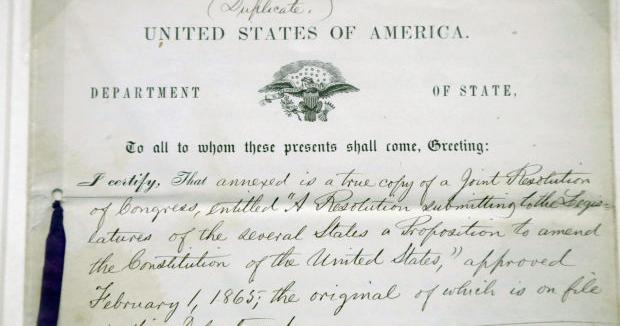 (Duplicate.)
UNITED STATES OF AMERICA.
DEPARTMENT OF STATE,
To all to whom these presents shall come, Greeting:
I certify, That annexed is a true copy of a Joint Resolution
of Congress, entitled "A Resolution submitting to the Legis-
latures of the several States a Proposition to amend
the Constitution of the United States," approved
February 1, 1865; the original of which is on file